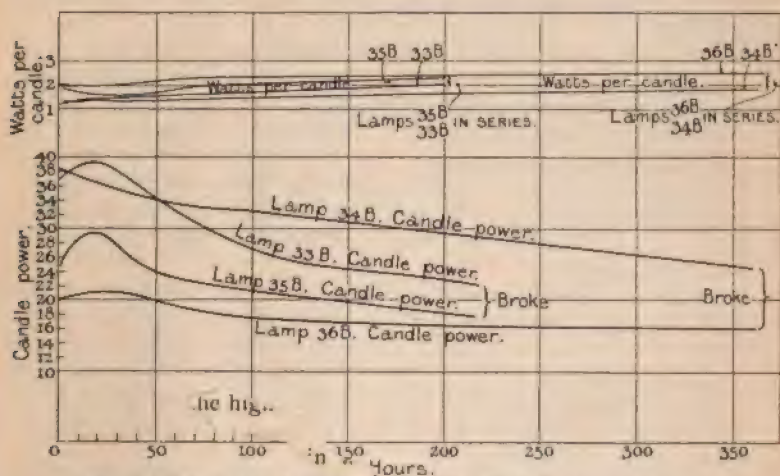 Watts per candle.
3
2
1
35B 33B
36B 34B
Watts per candle.
Watts per candle.
Lamps 35B 33B IN SERIES.
Lamps 36B 34B IN SERIES.
Candle power.
40
38
36
34
30
28
24
22
20
18
16
14
12
10
Lamp 34B. Candle power.
Lamp 33B. Candle power.
Lamp 35B. Candle power.
Lamp 36B. Candle power.
Broke
Broke
0 50 100 150 200 250 300 350
Hours.